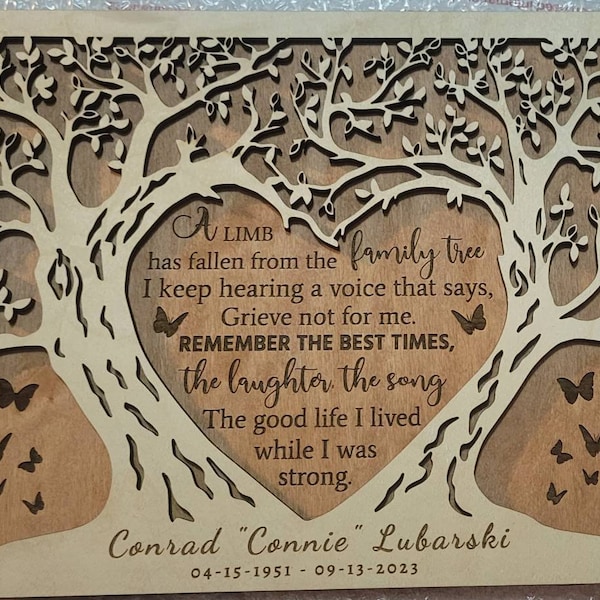 A LIMB
has fallen from the family tree
I keep hearing a voice that says,
Grieve not for me.
REMEMBER THE BEST TIMES,
the laughter, the song
The good life I lived
while I was
strong.
Conrad "Connie" Lubarski
04-15-1951 - 09-13-2023